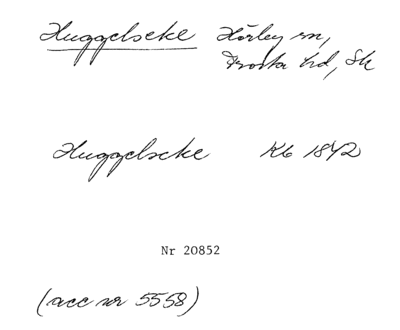 Huggelseke Hörley sn,
Frosta hd, Sk
Huggelseke Kb 1842
Nr 20852
(acc nr 5558)